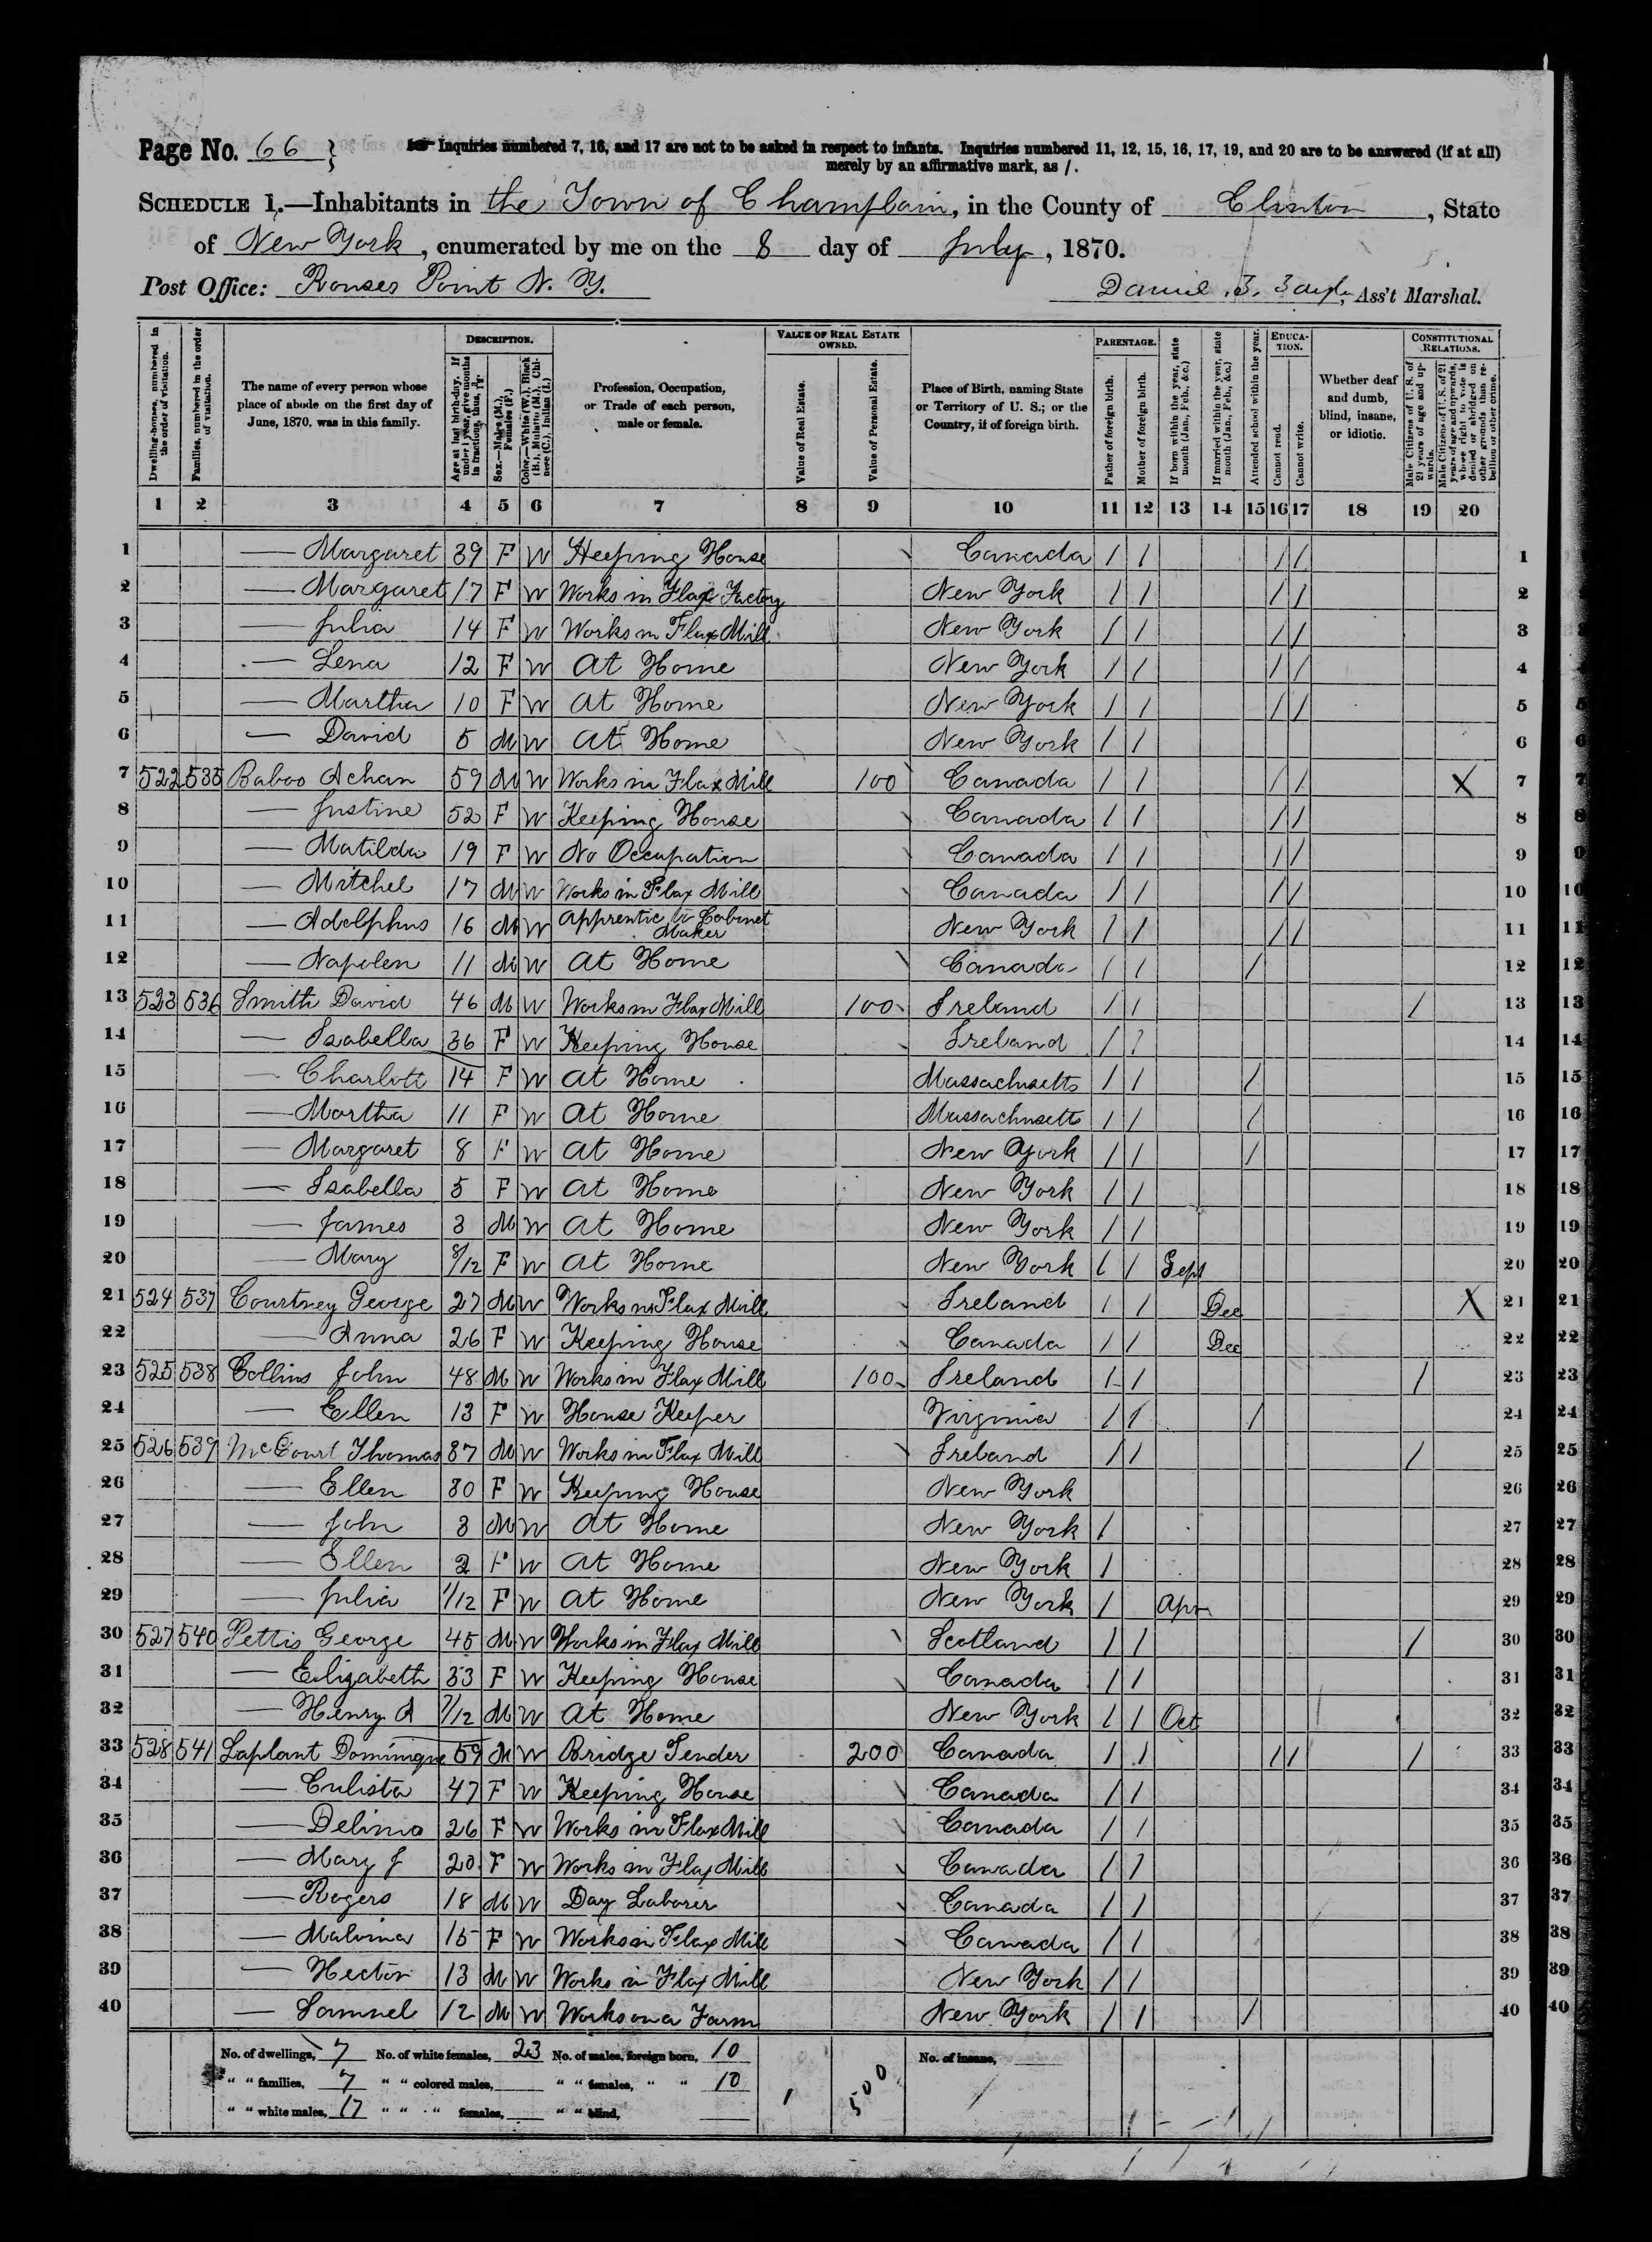 Page No. 66 } Inquiries numbered 7, 16, and 17 are not to be asked in respect to infants. Inquiries numbered 11, 12, 15, 16, 17, 19, and 20 are to be answered (if at all)
merely by an affirmative mark, as /.
SCHEDULE 1.—Inhabitants in the Town of Champlain, in the County of Clinton, State
of New York, enumerated by me on the 8 day of July, 1870.
Post Office: Rouses Point N. Y. Ass't Marshal.
Dwelling-houses, numbered in the order of visitation.
Families, numbered in the order of visitation.
The name of every person whose place of abode on the first day of June, 1870, was in this family.
DESCRIPTION.
Age at last birth-day. If under 1 year, give months in fractions, thus, 3/12.
Sex.—Males (M.), Females (F.)
Color.—White (W.), Black (B.), Mulatto (M.), Chinese (C.), Indian (I.)
Profession, Occupation, or Trade of each person, male or female.
VALUE OF REAL ESTATE OWNED.
Value of Real Estate.
Value of Personal Estate.
Place of Birth, naming State or Territory of U. S.; or the Country, if of foreign birth.
PARENTAGE.
Father of foreign birth.
Mother of foreign birth.
If born within the year, state month (Jan., Feb., &c.)
If married within the year, state month (Jan., Feb., &c.)
Attended school within the year.
EDUCATION.
Cannot read.
Cannot write.
Whether deaf and dumb, blind, insane, or idiotic.
CONSTITUTIONAL RELATIONS.
Male Citizens of U. S. of 21 years of age and upwards.
Male Citizens of U. S. of 21 years of age and upwards, whose right to vote is denied or abridged on other grounds than rebellion or other crime.
1 2 3 4 5 6 7 8 9 10 11 12 13 14 15 16 17 18 19 20
1 — Margaret 39 F W Keeping House Canada / / / / 1
2 — Margaret 17 F W Works in Flax Factory New York / / / / 2
3 — Julia 14 F W Works in Flax Mill New York / / / / 3
4 — Lena 12 F W At Home New York / / / / 4
5 — Martha 10 F W At Home New York / / / / 5
6 — David 5 M W At Home New York / / 6
7 522 535 Baboo Achan 59 M W Works in Flax Mill 100 Canada / / / / X 7
8 — Justine 52 F W Keeping House Canada / / / / 8
9 — Matilda 19 F W No Occupation Canada / / / / 9
10 — Mitchel 17 M W Works in Flax Mill Canada / / / / 10
11 — Adolphus 16 M W Apprentic to Cabinet Maker New York / / / / 11
12 — Napolen 11 M W At Home Canada / / / 12
13 523 536 Smith David 46 M W Works in Flax Mill 100 Ireland / / / 13
14 — Isabella 36 F W Keeping House Ireland / / 14
15 — Charlott 14 F W At Home Massachusetts / / / 15
16 — Martha 11 F W At Home Massachusetts / / / 16
17 — Margaret 8 F W At Home New York / / / 17
18 — Isabella 5 F W At Home New York / / 18
19 — James 3 M W At Home New York / / 19
20 — Mary 8/12 F W At Home New York / / Sept 20
21 524 537 Courtney George 27 M W Works in Flax Mill Ireland / / Dec X 21
22 — Anna 26 F W Keeping House Canada / / Dec 22
23 525 538 Collins John 48 M W Works in Flax Mill 100 Ireland / / / 23
24 — Ellen 13 F W House Keeper Virginia / / / 24
25 526 539 McCourt Thomas 37 M W Works in Flax Mill Ireland / / / 25
26 — Ellen 30 F W Keeping House New York 26
27 — John 3 M W At Home New York / 27
28 — Ellen 2 F W At Home New York / 28
29 — Julia 1/12 F W At Home New York / Apr 29
30 527 540 Pettis George 45 M W Works in Flax Mill Scotland / / / 30
31 — Elizabeth 33 F W Keeping House Canada / / 31
32 — Henry A 7/12 M W At Home New York / / Oct 32
33 528 541 Laplant Dominique 59 M W Bridge Tender 200 Canada / / / / / 33
34 — Culista 47 F W Keeping House Canada / / 34
35 — Delima 26 F W Works in Flax Mill Canada / / 35
36 — Mary J 20 F W Works in Flax Mill Canada / / 36
37 — Rogers 18 M W Day Laborer Canada / / 37
38 — Malvina 15 F W Works in Flax Mill Canada / / 38
39 — Hector 13 M W Works in Flax Mill New York / / 39
40 — Samuel 12 M W Works on a Farm New York / / / 40
No. of dwellings, 7 No. of white females, 23 No. of males, foreign born, 10 No. of insane,
" " families, 7 " " colored males, " " females, " " 10 500
" " white males, 17 " " " females, " " blind,